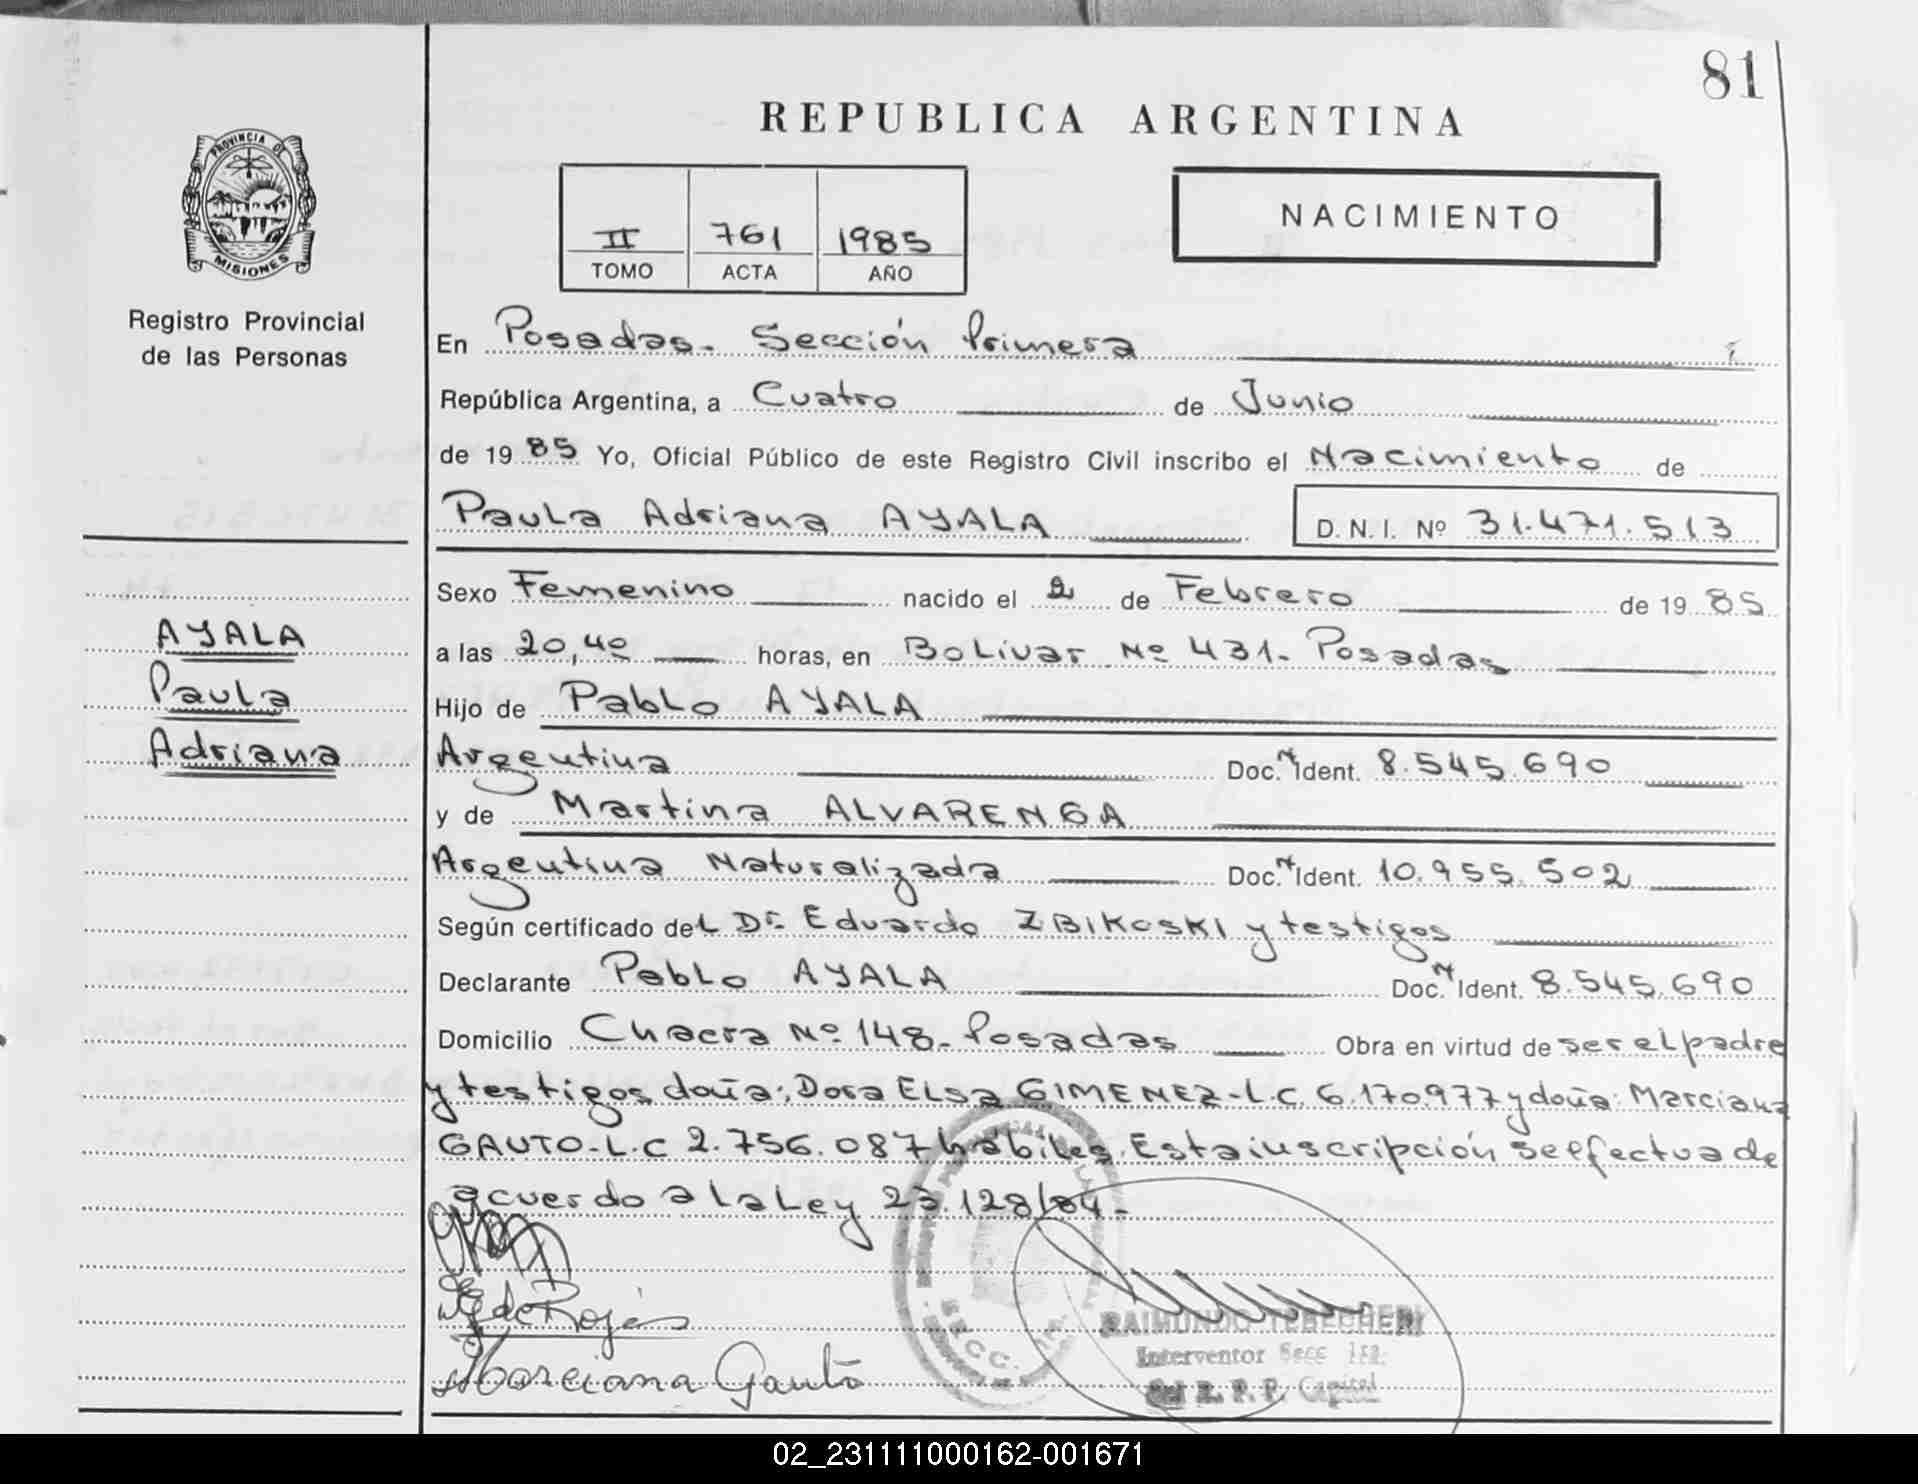 81
REPUBLICA ARGENTINA
PROVINCIA DE
MISIONES
Registro Provincial
de las Personas
II 761 1985
TOMO ACTA AÑO
NACIMIENTO
En Posadas. Sección Primera
República Argentina, a Cuatro de Junio
de 1985 Yo, Oficial Público de este Registro Civil inscribo el Nacimiento de
Paula Adriana AYALA D. N. I. Nº 31.471.513
Sexo Femenino nacido el 2 de Febrero de 1985
AYALA
a las 20,40 horas, en Bolivar Nº 431. Posadas
Paula
Hijo de Pablo AYALA
Adriana
Argentina Doc. Ident. 8.545.690
y de Martina ALVARENGA
Argentina Naturalizada Doc. Ident. 10.955.502
Según certificado del Dr. Eduardo ZBIKOSKI y testigos
Declarante Pablo AYALA Doc. Ident. 8.545.690
Domicilio Chacra Nº 148. Posadas Obra en virtud de ser el padre
y testigos doña: Dora Elsa GIMENEZ-L.C 6.170.977 y doña: Marciana
GAUTO-L.C 2.756.087 hábiles. Esta inscripción se efectua de
acuerdo a la Ley 23.128/84.-
de Rojas
Marciana Gauto
SECC. 1RA.
RAIMUNDO TEBECHERI
Interventor Secc 1ra.
del R. P. P. Capital
02_231111000162-001671